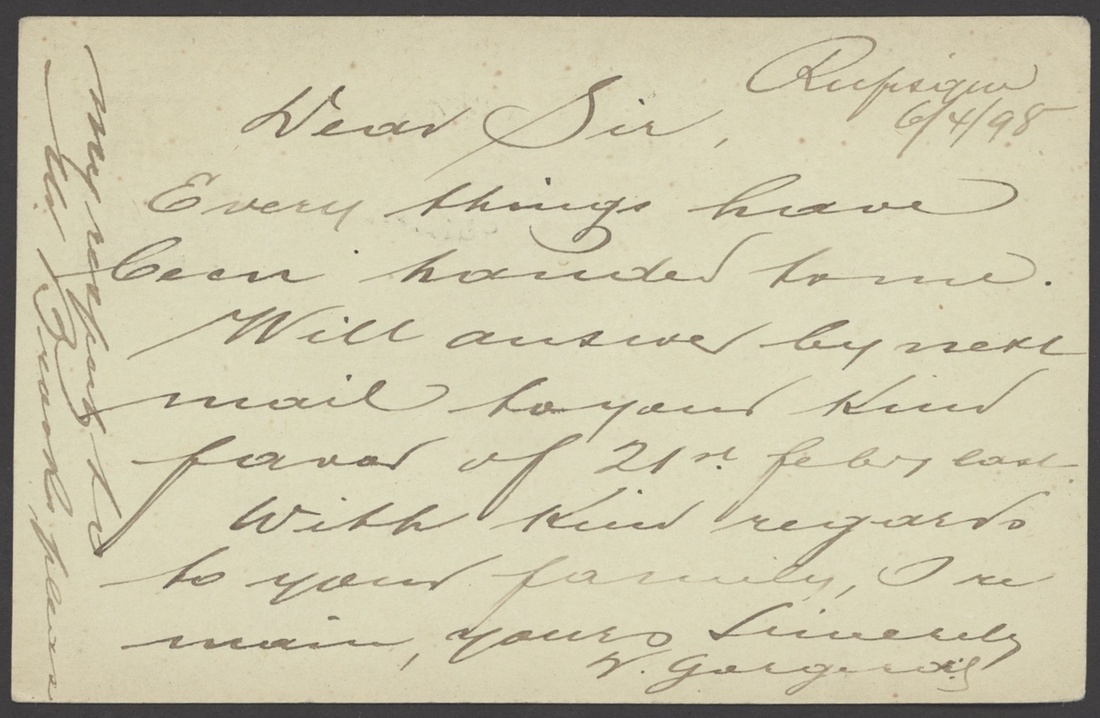 Rufisque
6/4/98
Dear Sir,
Every things have
been handed to me.
Will answer by next
mail to your kind
favor of 21st feb'ry last
With kind regards
to your family, I re
main, yours Sincerely
My respects to
Mr please